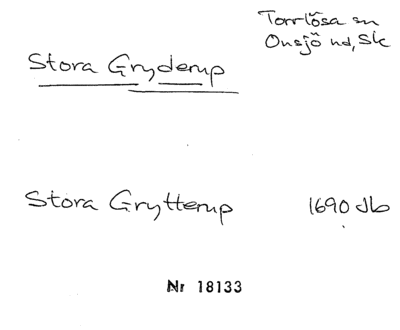 Torrlösa sn
Onsjö hd, Sk
Stora Gryderup
Stora Grytterup 1690 Jb
Nr 18133